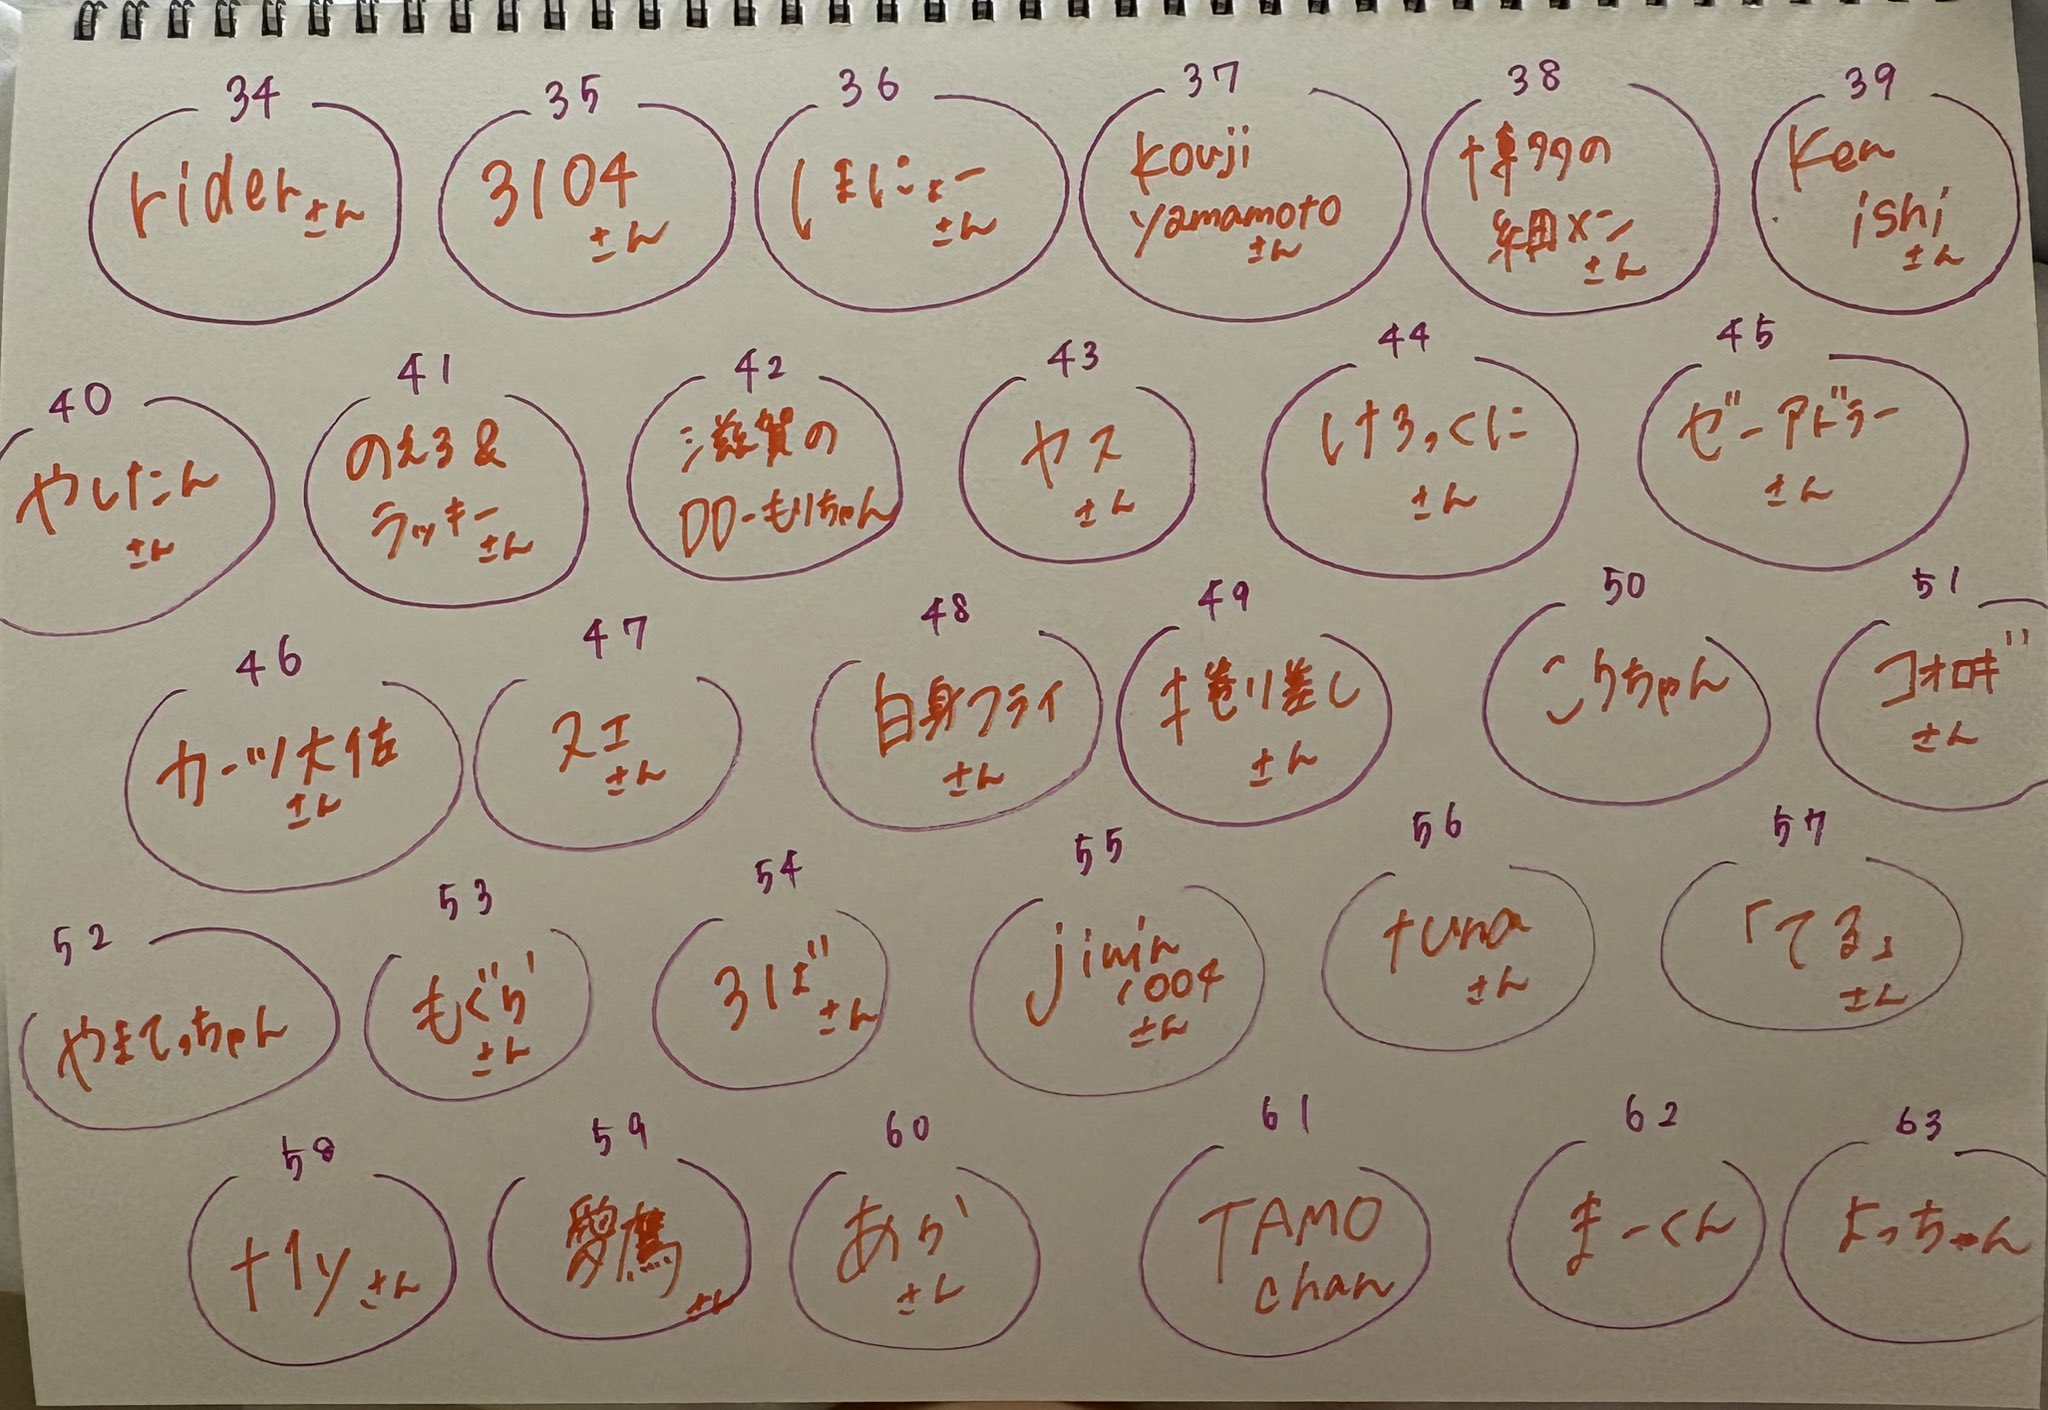 34
rider さん
35
3104
さん
36
しまにょー
さん
37
Kouji
Yamamoto
さん
38
博多の
細メン
さん
39
Ken
ishi
さん
40
やしたん
さん
41
のえる&
ラッキー
さん
42
滋賀の
DD-もりちゃん
43
ヤス
さん
44
けろっぐに
さん
45
ゼーアドラー
さん
46
カーツ大佐
さん
47
スエ
さん
48
白身フライ
さん
49
巻り差し
さん
50
こりちゃん
51
コオロギ
さん
52
やまてっちゃん
53
もぐら
さん
54
さん
55
jimin
1004
さん
56
tuna
さん
57
「てる」
さん
58
t1y さん
59
愛鷹
さん
60
あら
さん
61
TAMO
chan
62
まーくん
63
よっちゃん